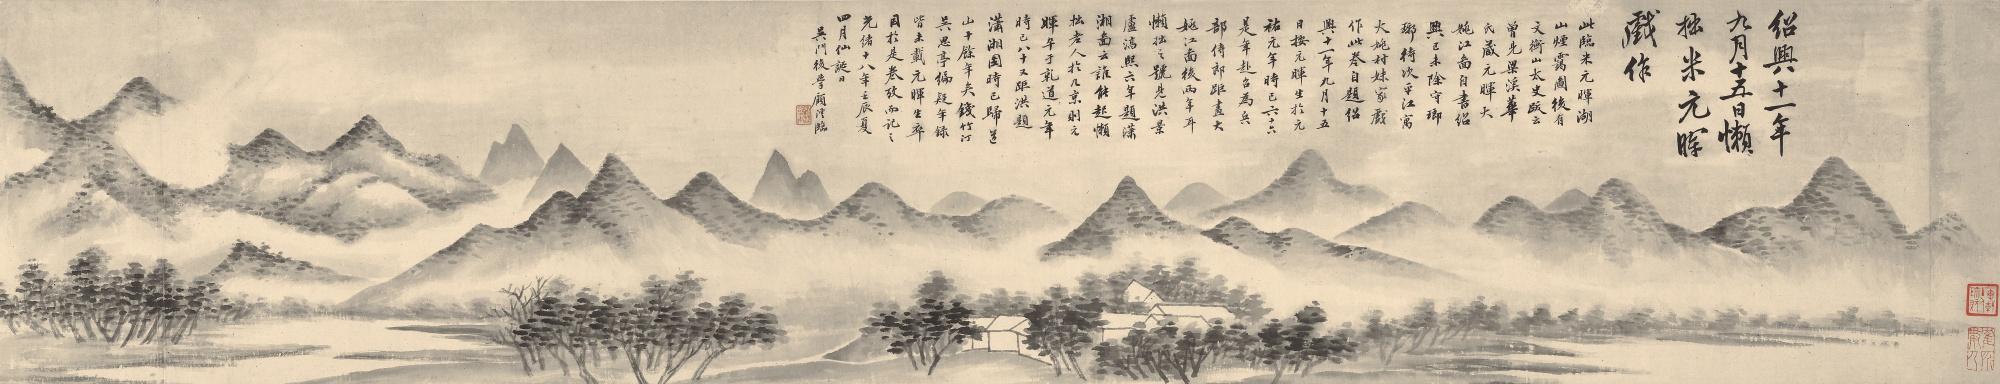 紹興十一年
九月十五日懶
拙米元暉
戲作
此臨米元暉湖
山煙靄圖後有
文衡山太史跋云
曾見梁溪華
氏藏元暉大
姚江圖自書紹
興己未除守瑯
瑯待次平江寓
大姚村妹家戲
作此卷自題紹
興十一年九月十五
日按元暉生於元
祐元年時已六十六
是年赴召為兵
部侍郎距畫大
姚江圖後兩年耳
懶拙之號見洪景
盧淳熙六年題瀟
湘圖云誰能起懶
拙老人於九京則元
暉卒于乾道元年
時已八十又距洪題
瀟湘圖時已歸道
山十餘年矣錢竹汀
吳思亭偏疑年錄
皆未載元暉生卒
因於是卷發而記之
光緒十八年壬辰夏
四月仙誕日
吳門後學顧澐臨